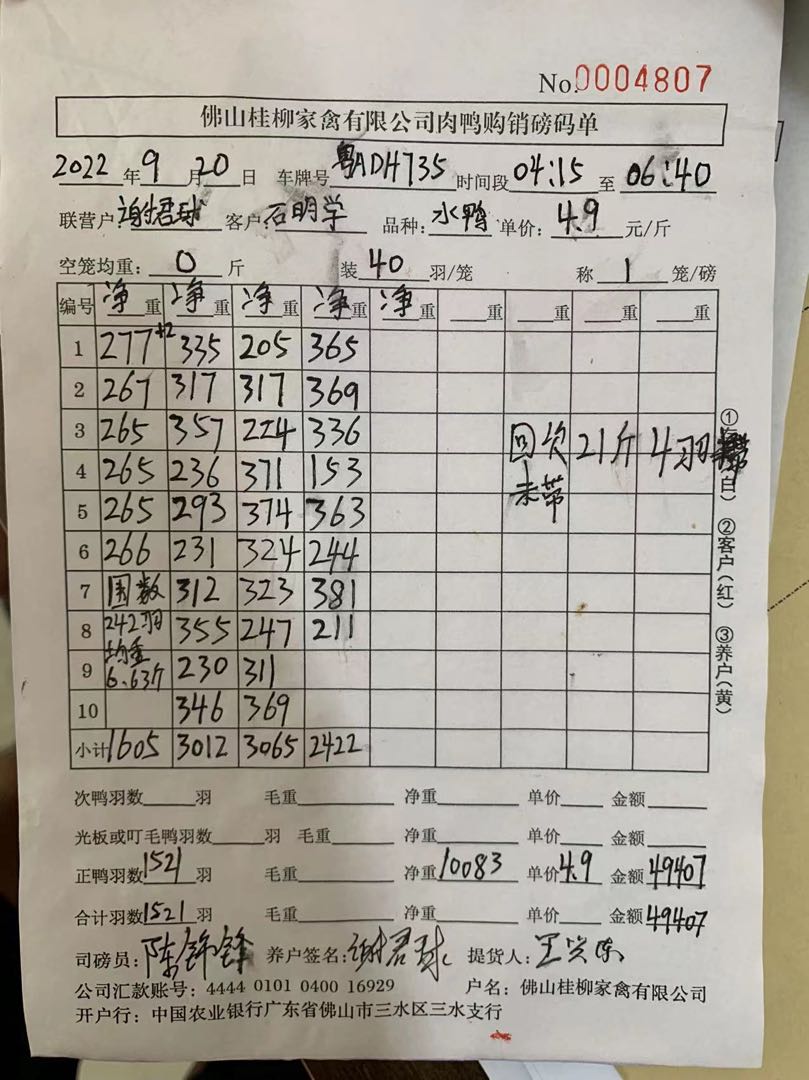 No.0004807
佛山桂柳家禽有限公司肉鸭购销磅码单
2022年9月20日 车牌号粤ADH735 时间段04:15至06:40
联营户:谢君球 客户:石明学 品种:水鸭 单价:4.9元/斤
空笼均重:0斤 装40羽/笼 称1笼/磅
编号 净重 净重 净重 净重 净重 重 重 重 重
1 277+2 335 205 365
2 267 317 317 369
3 265 357 224 336 回次 21斤 4羽
4 265 236 371 153 未带
5 265 293 374 363
6 266 231 324 244
7 围数 312 323 381
8 242羽 355 247 211
9 均重6.63斤 230 311
10 346 369
小计 1605 3012 3065 2422
次鸭羽数 羽 毛重 净重 单价 金额
光板或叮毛鸭羽数 羽 毛重 净重 单价 金额
正鸭羽数1521羽 毛重 净重10083 单价4.9 金额49407
合计羽数1521羽 毛重 净重 单价 金额49407
司磅员:陈锦锋 养户签名:谢君球 提货人:王兴
公司汇款账号:4444 0101 0400 16929 户名:佛山桂柳家禽有限公司
开户行:中国农业银行广东省佛山市三水区三水支行
①
白)
②客户(红)
③养户(黄)